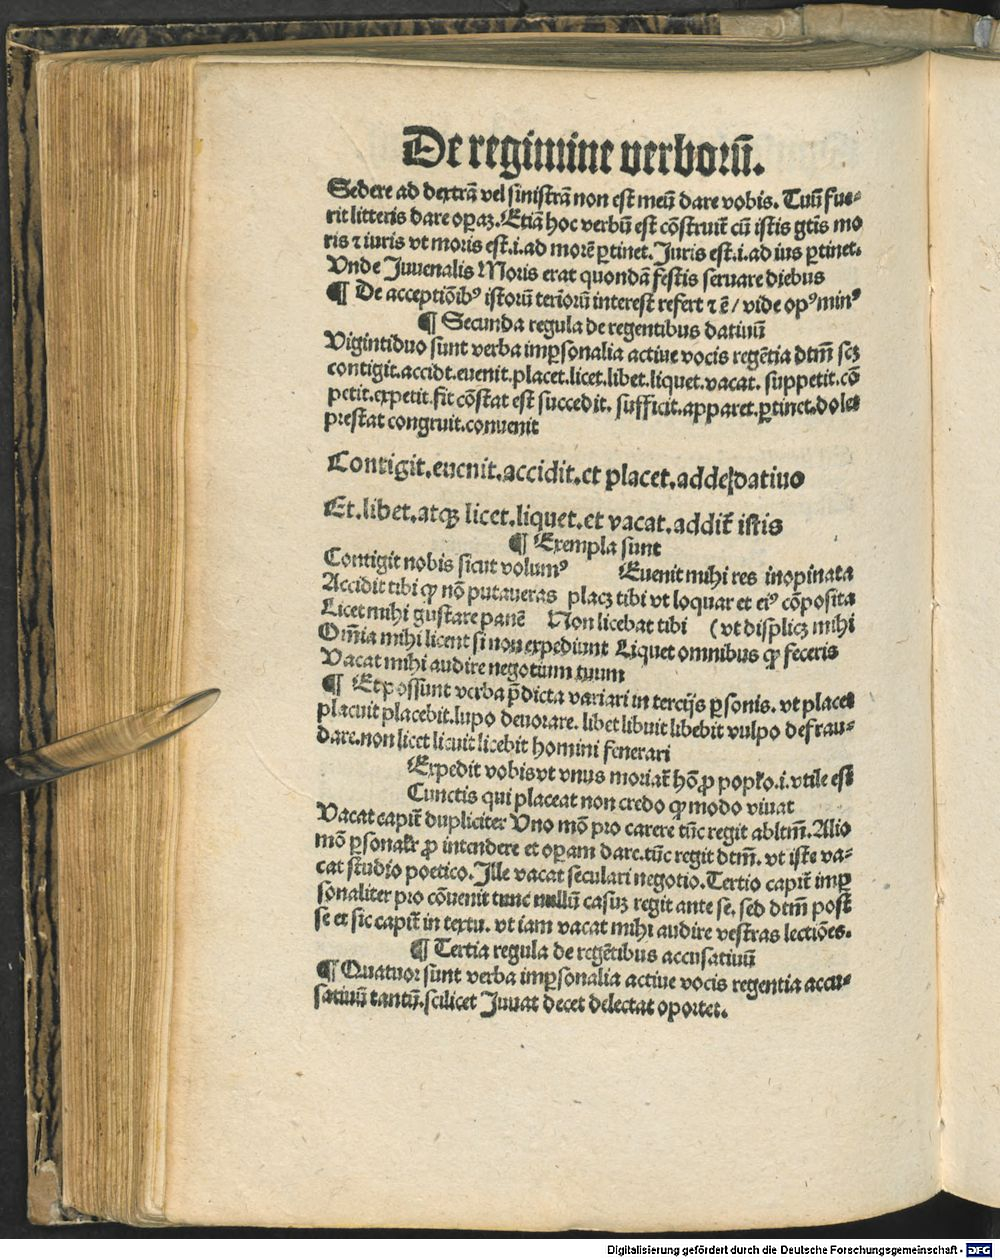 De regimine verborū.
Sedere ad dextrā vel sinistrā non est meū dare vobis. Tuū fue-
rit litteris dare operaȝ. Etiā hoc verbū est cōstruit̄ cū istis gtīs mo
ris ⁊ iuris vt moris est .i. ad morē ꝑtinet. Juris est .i. ad ius ꝑtinet.
Vnde Juvenalis Moris erat quondā festis seruare diebus
¶ De acceptiōibꝰ istorū terīorū interest refert ⁊ ē / vide opꝰ minꝰ
¶ Secunda regula de regentibus datiuū
Vigintiduo sunt verba imꝑsonalia actiue vocis regētia dtm̄ scȝ
contigit.accidt.euenit.placet.licet.libet.liquet.vacat. suppetit.cō
petit.expetit.fit cōstat est succedit. sufficit.apparet.ꝑtinet.dolet
prestat congruit.convenit
Contigit.euenit.accidit.et placet.adde datiuo
Et.libet.atqȝ licet.liquet.et vacat.addit̄ istis
¶ Exempla sunt
Contigit nobis sicut volumꝰ Euenit mihi res inopinata
Accidit tibi ꝙ nō putaueras placȝ tibi vt loquar et eiꝰ cōposita
Licet mihi gustare panē Non licebat tibi (vt displicȝ mihi
Om̄ia mihi licent si non expediunt Liquet omnibus ꝙ feceris
Vacat mihi audire negotium tuum
¶ Et possunt verba p̄dicta variari in tercijs ꝑsonis. vt placet
placuit placebit.lupo deuorare. libet libuit libebit vulpo defrau-
dare.non licet licuit licebit homini fenerari
Expedit vobis vt vnus moriat̄ hō ꝓ popl̄o .i. vtile est
Cunctis qui placeat non credo ꝙ modo viuat
Vacat capit̄ dupliciter Vno mō pro carere tūc regit abltm̄. Alio
mō ꝑsonalr̄ ꝓ intendere et operam dare.tūc regit dtm̄. vt iste va-
cat studio poetico. Ille vacat seculari negotio. Tertio capit̄ imꝑ
sonaliter pro cōuenit tunc nullū casuȝ regit ante se, sed dtm̄ post
se et sic capit̄ in textu. vt iam vacat mihi audire vestras lectiōes.
¶ Tertia regula de regētibus accusatiuū
¶ Quatuor sūnt verba imꝑsonalia actiue vocis regentia accu-
satiuū tantū.scilicet Juuat decet delectat oportet.
Digitalisierung gefördert durch die Deutsche Forschungsgemeinschaft - DFG